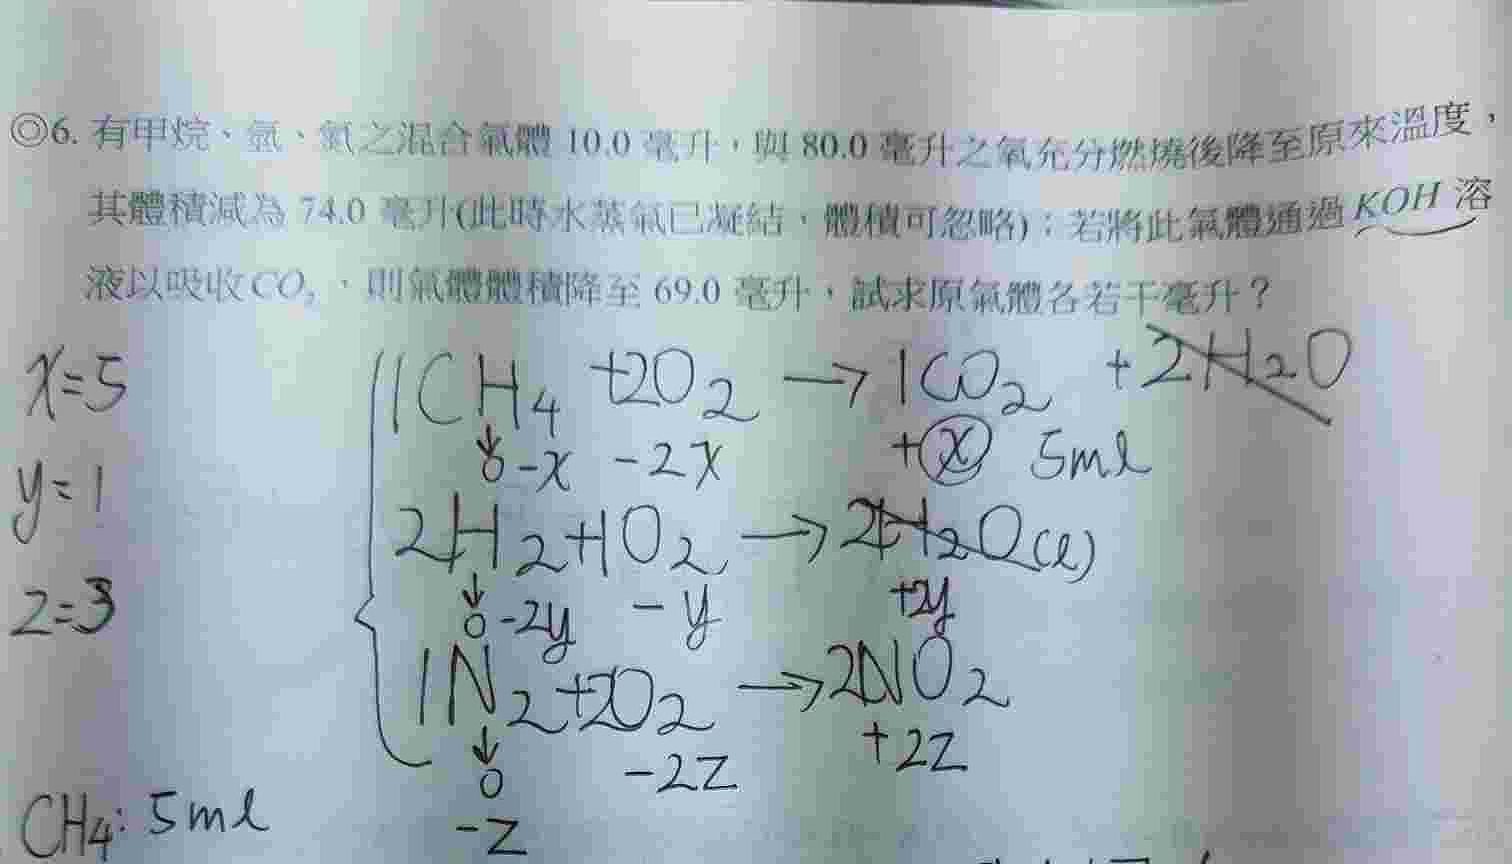 ◎6. 有甲烷、氫、氮之混合氣體 10.0 毫升，與 80.0 毫升之氧充分燃燒後降至原來溫度，
其體積減為 74.0 毫升(此時水蒸氣已凝結，體積可忽略)；若將此氣體通過 KOH 溶
液以吸收CO₂，則氣體體積降至 69.0 毫升，試求原氣體各若干毫升？
x=5
1CH₄ +2O₂ → 1CO₂ + 2H₂O
↓
0 -x -2x +x 5ml
y=1
2H₂+1O₂ → 2H₂O(l)
↓
0 -2y -y +2y
z=3
1N₂+2O₂ → 2NO₂
↓
0 -2z +2z
-z
CH₄: 5ml